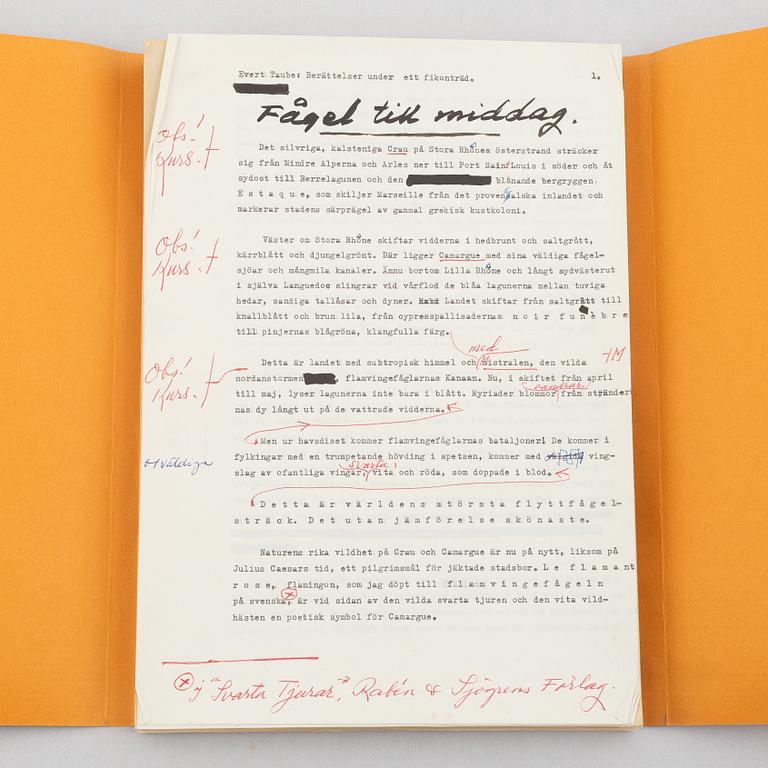 Evert Taube: Berättelser under ett fikonträd. 1.
Fågel till middag.
Obs! Kurs.
Det silvriga, kalsteniga Crau på Stora Rhônes österstrand sträcker
sig från Mindre Alperna och Arles ner till Port Saint Louis i söder och åt
sydost till Berrelagunen och den blånande bergryggen.
E s t a q u e, som skiljer Marseille från det provençalska inlandet och
markerar stadens särprägel av gammal grekisk kustkoloni.
Obs! Kurs.
Väster om Stora Rhône skiftar vidderna i hedbrunt och saltgrått,
kärrblått och djungelgrönt. Där ligger Camargue med sina väldiga fågel-
sjöar och mångmila kanaler. Ännu bortom Lilla Rhône och långt sydvästerut
i själva Languedoc slingrar vid vårflod de blåa lagunerna mellan tuviga
hedar, sandiga tallåsar och dyner. Landet skiftar från saltgrått till
knallblått och brun lila, från cypresspallisadernas n o i r f u n è b r e
till pinjernas blågröna, klangfulla färg.
med
Obs! Kurs.
Detta är landet med subtropisk himmel och Mistralen, den vilda
+M
nordanstormen, flamvingefåglarnas Kanaan. Nu, i skiftet från april
vandrar
till maj, lyser lagunerna inte bara i blått. Myriader blommor från stränder-
nas dy långt ut på de vattrade vidderna.
Men ur havsdiset kommer flamvingefåglarnas bataljoner! De kommer i
H väldiga
fylkingar med en trumpetande hövding i spetsen, kommer med ving-
svarta,
slag av ofantliga vingar, vita och röda, som doppade i blod.
D e t t a ä r v ä r l d e n s s t ö r s t a f l y t t f å g e l -
s t r ä c k. D e t u t a n j ä m f ö r e l s e s k ö n a s t e.
Naturens rika vildhet på Crau och Camargue är nu på nytt, liksom på
Julius Caesars tid, ett pilgrimsmål för jäktade stadsbor. L e f l a m a n t
r o s e, flamingon, som jag döpt till f l a m v i n g e f å g e l n
på svenska, är vid sidan av den vilda svarta tjuren och den vita vild-
hästen en poetisk symbol för Camargue.
j "Svarta Tjurar", Rabén & Sjögrens Förlag.